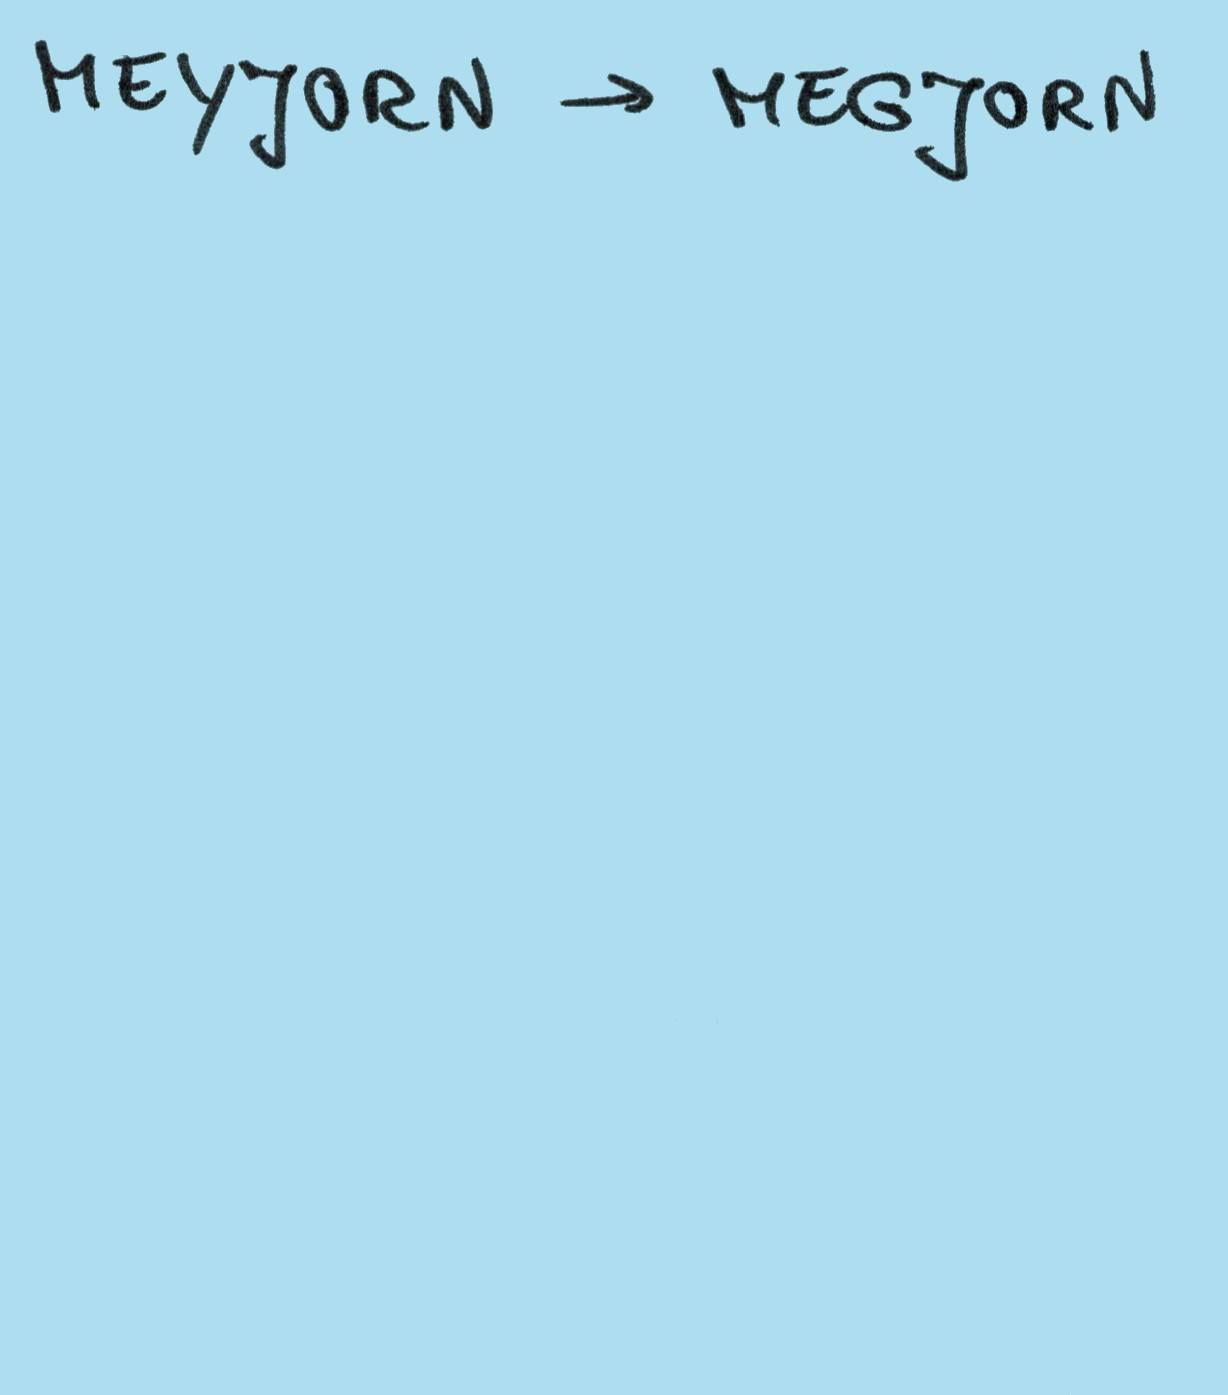 MEYJORN → MEGJORN